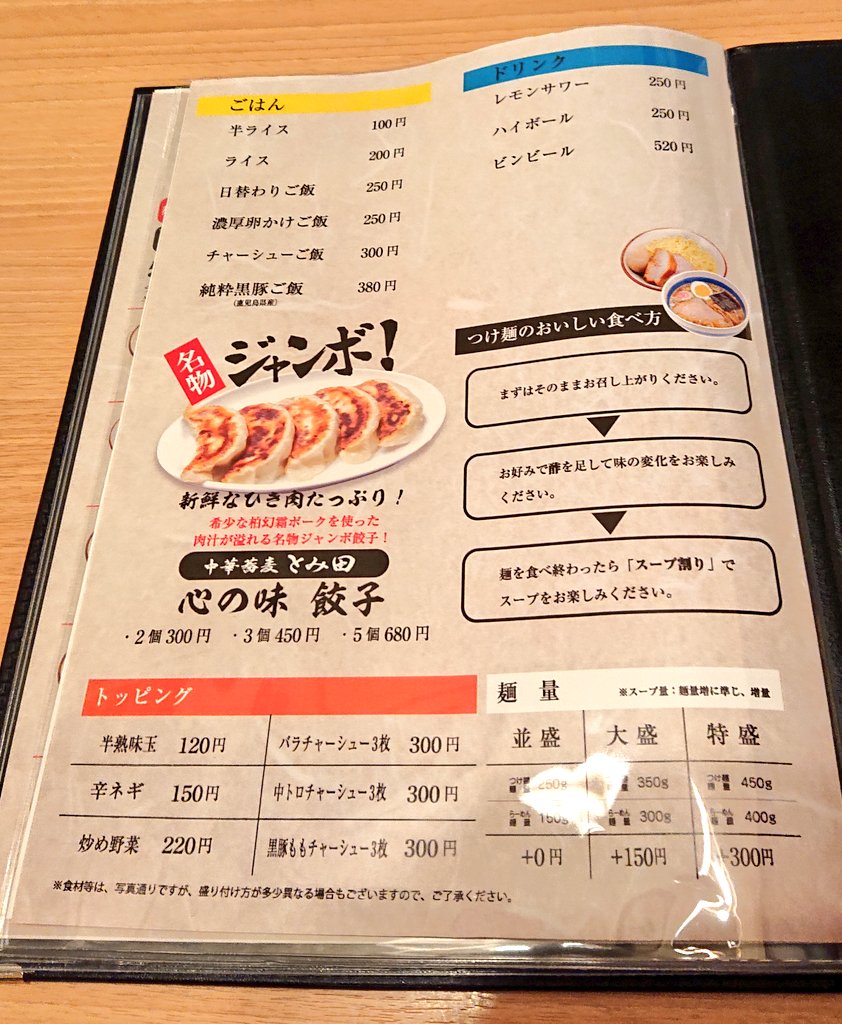 ごはん
半ライス 100円
ライス 200円
日替わりご飯 250円
濃厚卵かけご飯 250円
チャーシューご飯 300円
純粋黒豚ご飯 380円
(鹿児島県産)
ドリンク
レモンサワー 250円
ハイボール 250円
ビンビール 520円
名物
ジャンボ!
新鮮なひき肉たっぷり!
希少な柏幻霜ポークを使った
肉汁が溢れる名物ジャンボ餃子!
中華蕎麦 とみ田
心の味 餃子
・2個300円 ・3個450円 ・5個680円
つけ麺のおいしい食べ方
まずはそのままお召し上がりください。
お好みで酢を足して味の変化をお楽しみ
ください。
麺を食べ終わったら「スープ割り」で
スープをお楽しみください。
トッピング
半熟味玉 120円 バラチャーシュー3枚 300円
辛ネギ 150円 中トロチャーシュー3枚 300円
炒め野菜 220円 黒豚ももチャーシュー3枚 300円
麺 量 ※スープ量:麺量増に準じ、増量
並盛 大盛 特盛
つけ麺 麺量 250g つけ麺 麺量 350g つけ麺 麺量 450g
らーめん 麺量 150g らーめん 麺量 300g らーめん 麺量 400g
+0円 +150円 +300円
※食材等は、写真通りですが、盛り付け方が多少異なる場合もございますので、ご了承ください。